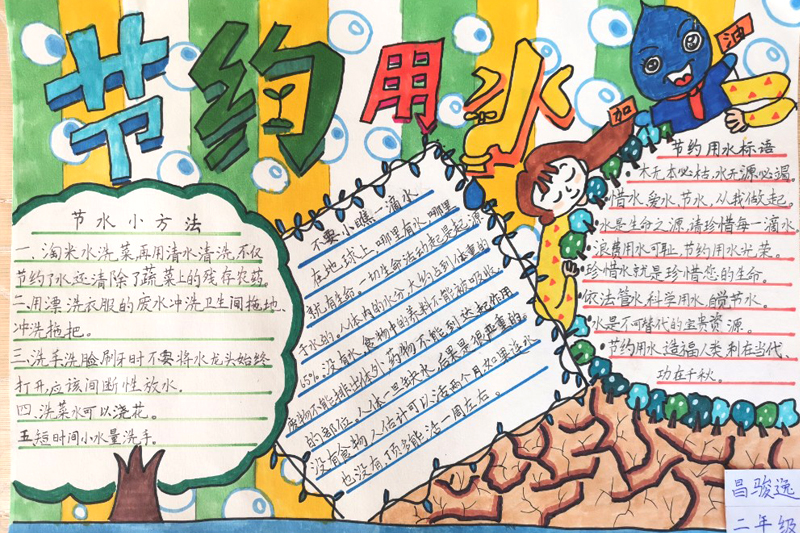 节约用水
加
油
节水小方法
一、淘米水洗菜再用清水清洗,不仅
节约了水还清除了蔬菜上的残存农药
二.用漂洗衣服的废水冲洗卫生间拖地、
冲洗拖把。
三.洗手洗脸刷牙时不要将水龙头始终
打开应该间断性放水.
四.洗菜水可以浇花。
五短时间小水量洗手。
不要小瞧一滴水
在地球上,哪里有水,哪里
就有生命。一切生命活动起是起源
于水的。人体内的水分,大约占到体重的
65%.没有水,食物中的养料不能被吸收,
废物不能排出体外,药物不能到达起作用
的部位。人体一旦缺水,后果是很严重的。
没有食物,人估计可以活两个月,如果连水
也没有,顶多能活一周左右。
节约用水标语
·木无本必枯,水无源必竭.
·惜水、爱水、节水,从我做起.
·水是生命之源,请珍惜每一滴水
·浪费用水可耻,节约用水光荣。
·珍惜水就是珍惜您的生命。
·依法管水,科学用水,自觉节水。
·水是不可替代的宝贵资源。
·节约用水,造福人类,利在当代、
功在千秋。
昌骏逸
二年级